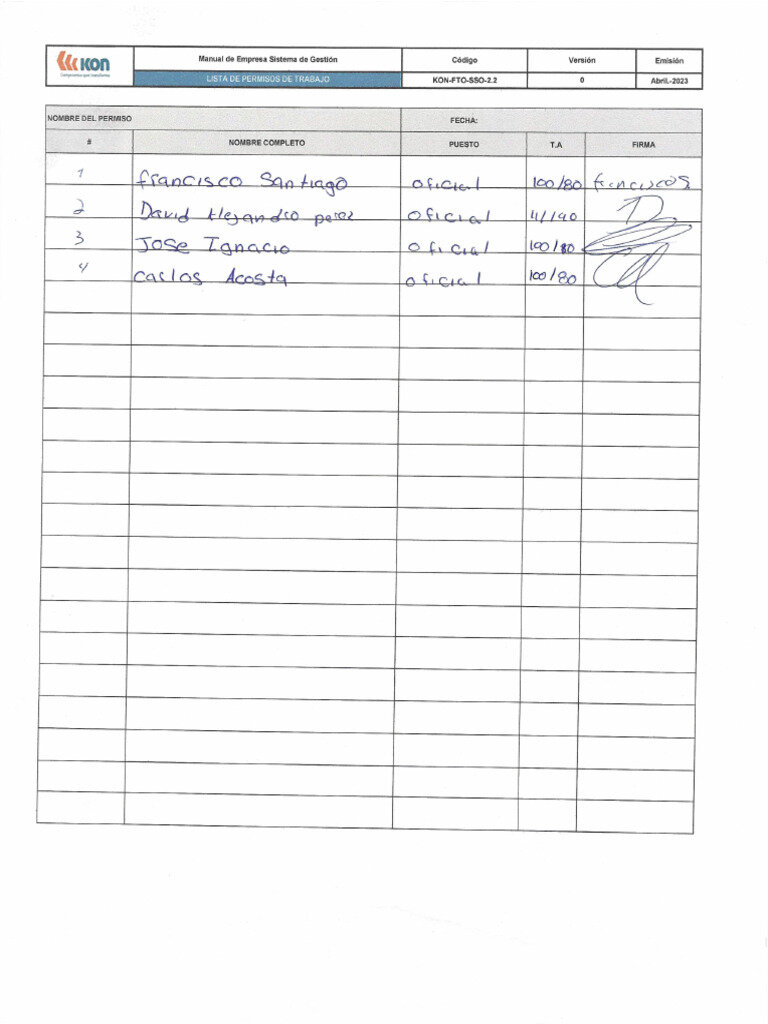 KON
Manual de Empresa Sistema de Gestión Código Versión Emisión
Compromiso que transforma
LISTA DE PERMISOS DE TRABAJO KON-FTO-SSO-2.2 0 Abril.-2023
NOMBRE DEL PERMISO FECHA:
# NOMBRE COMPLETO PUESTO T.A FIRMA
1 francisco Santiago oficial 100/80 franciscos
2 David Alejandro perez oficial
3 JOSE Ignacio oficial 100/80
4 Carlos Acosta oficial 100/80